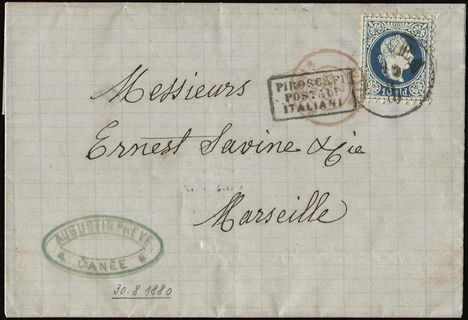 PIROSCAFI
POSTALI
ITALIANI
10 SLD
Messieurs
Ernest Savine & Cie
Marseille
AUGUSTIN PREVE
* CANÉE *
30.8 1880